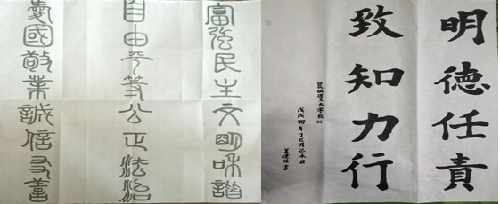 富強民主文明和諧
自由平等公正法治
愛國敬業誠信友善
明德任責
致知力行
昆明理工大學校訓